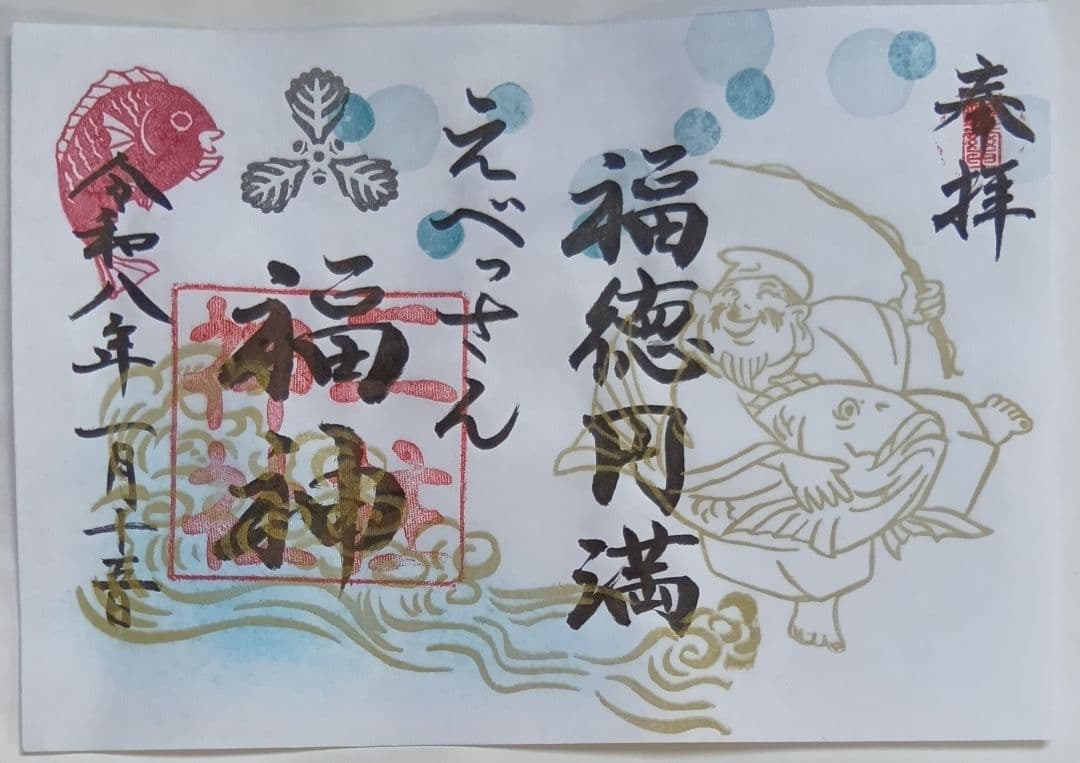 奉拝
福徳円満
えべっさん
福神
令和八年一月十五日